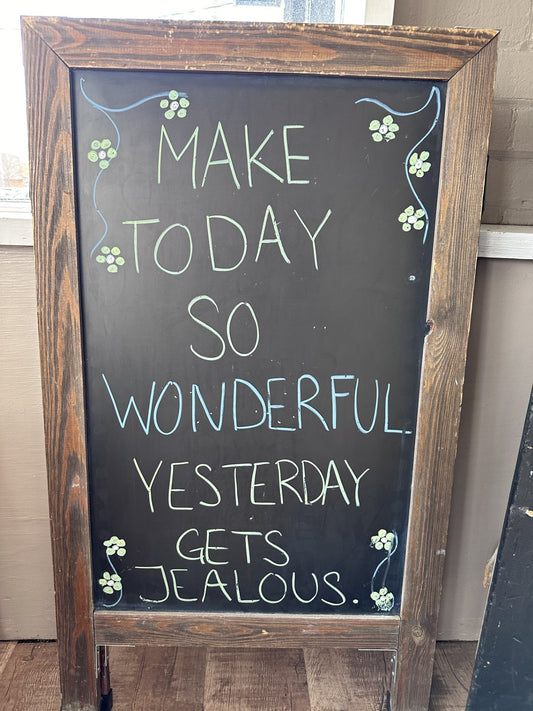 MAKE
TODAY
SO
WONDERFUL.
YESTERDAY
GETS
JEALOUS.